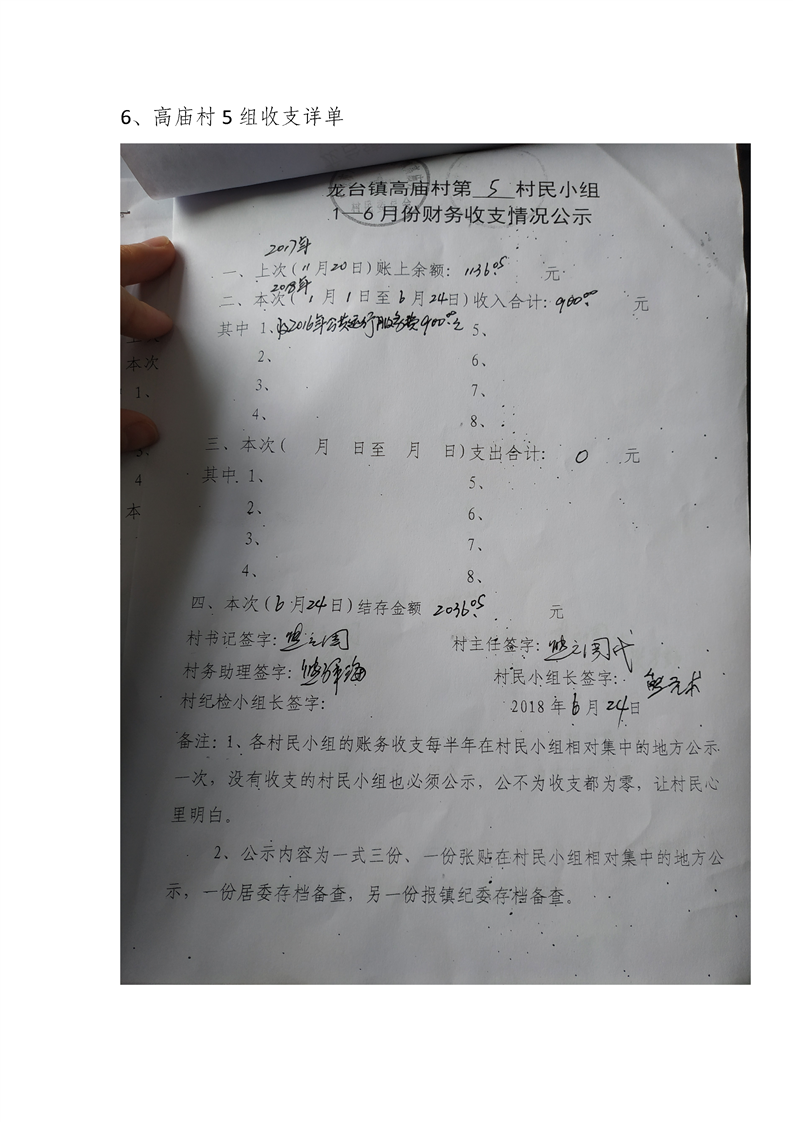 6、高庙村5组收支详单
龙台镇高庙村第 5 村民小组
1—6月份财务收支情况公示
2017年
一、上次(11月20日)账上余额: 1136.05 元
2018年
二、本次(1月1日至6月24日)收入合计: 900.00 元
其中 1、收2016年公共运行服务费900.00元 5、
2、 6、
3、 7、
4、 8、
三、本次( 月 日至 月 日)支出合计: 0 元
其中 1、 5、
2、 6、
3、 7、
4、 8、
四、本次(6月24日)结存金额 2036.05 元
村书记签字: 村主任签字:
村务助理签字: 村民小组长签字:
村纪检小组长签字: 2018年6月24日
备注:1、各村民小组的账务收支每半年在村民小组相对集中的地方公示
一次,没有收支的村民小组也必须公示,公不为收支都为零,让村民心
里明白。
2、公示内容为一式三份、一份张贴在村民小组相对集中的地方公
示,一份居委存档备查,另一份报镇纪委存档备查。
本次
1、
3、
4
本